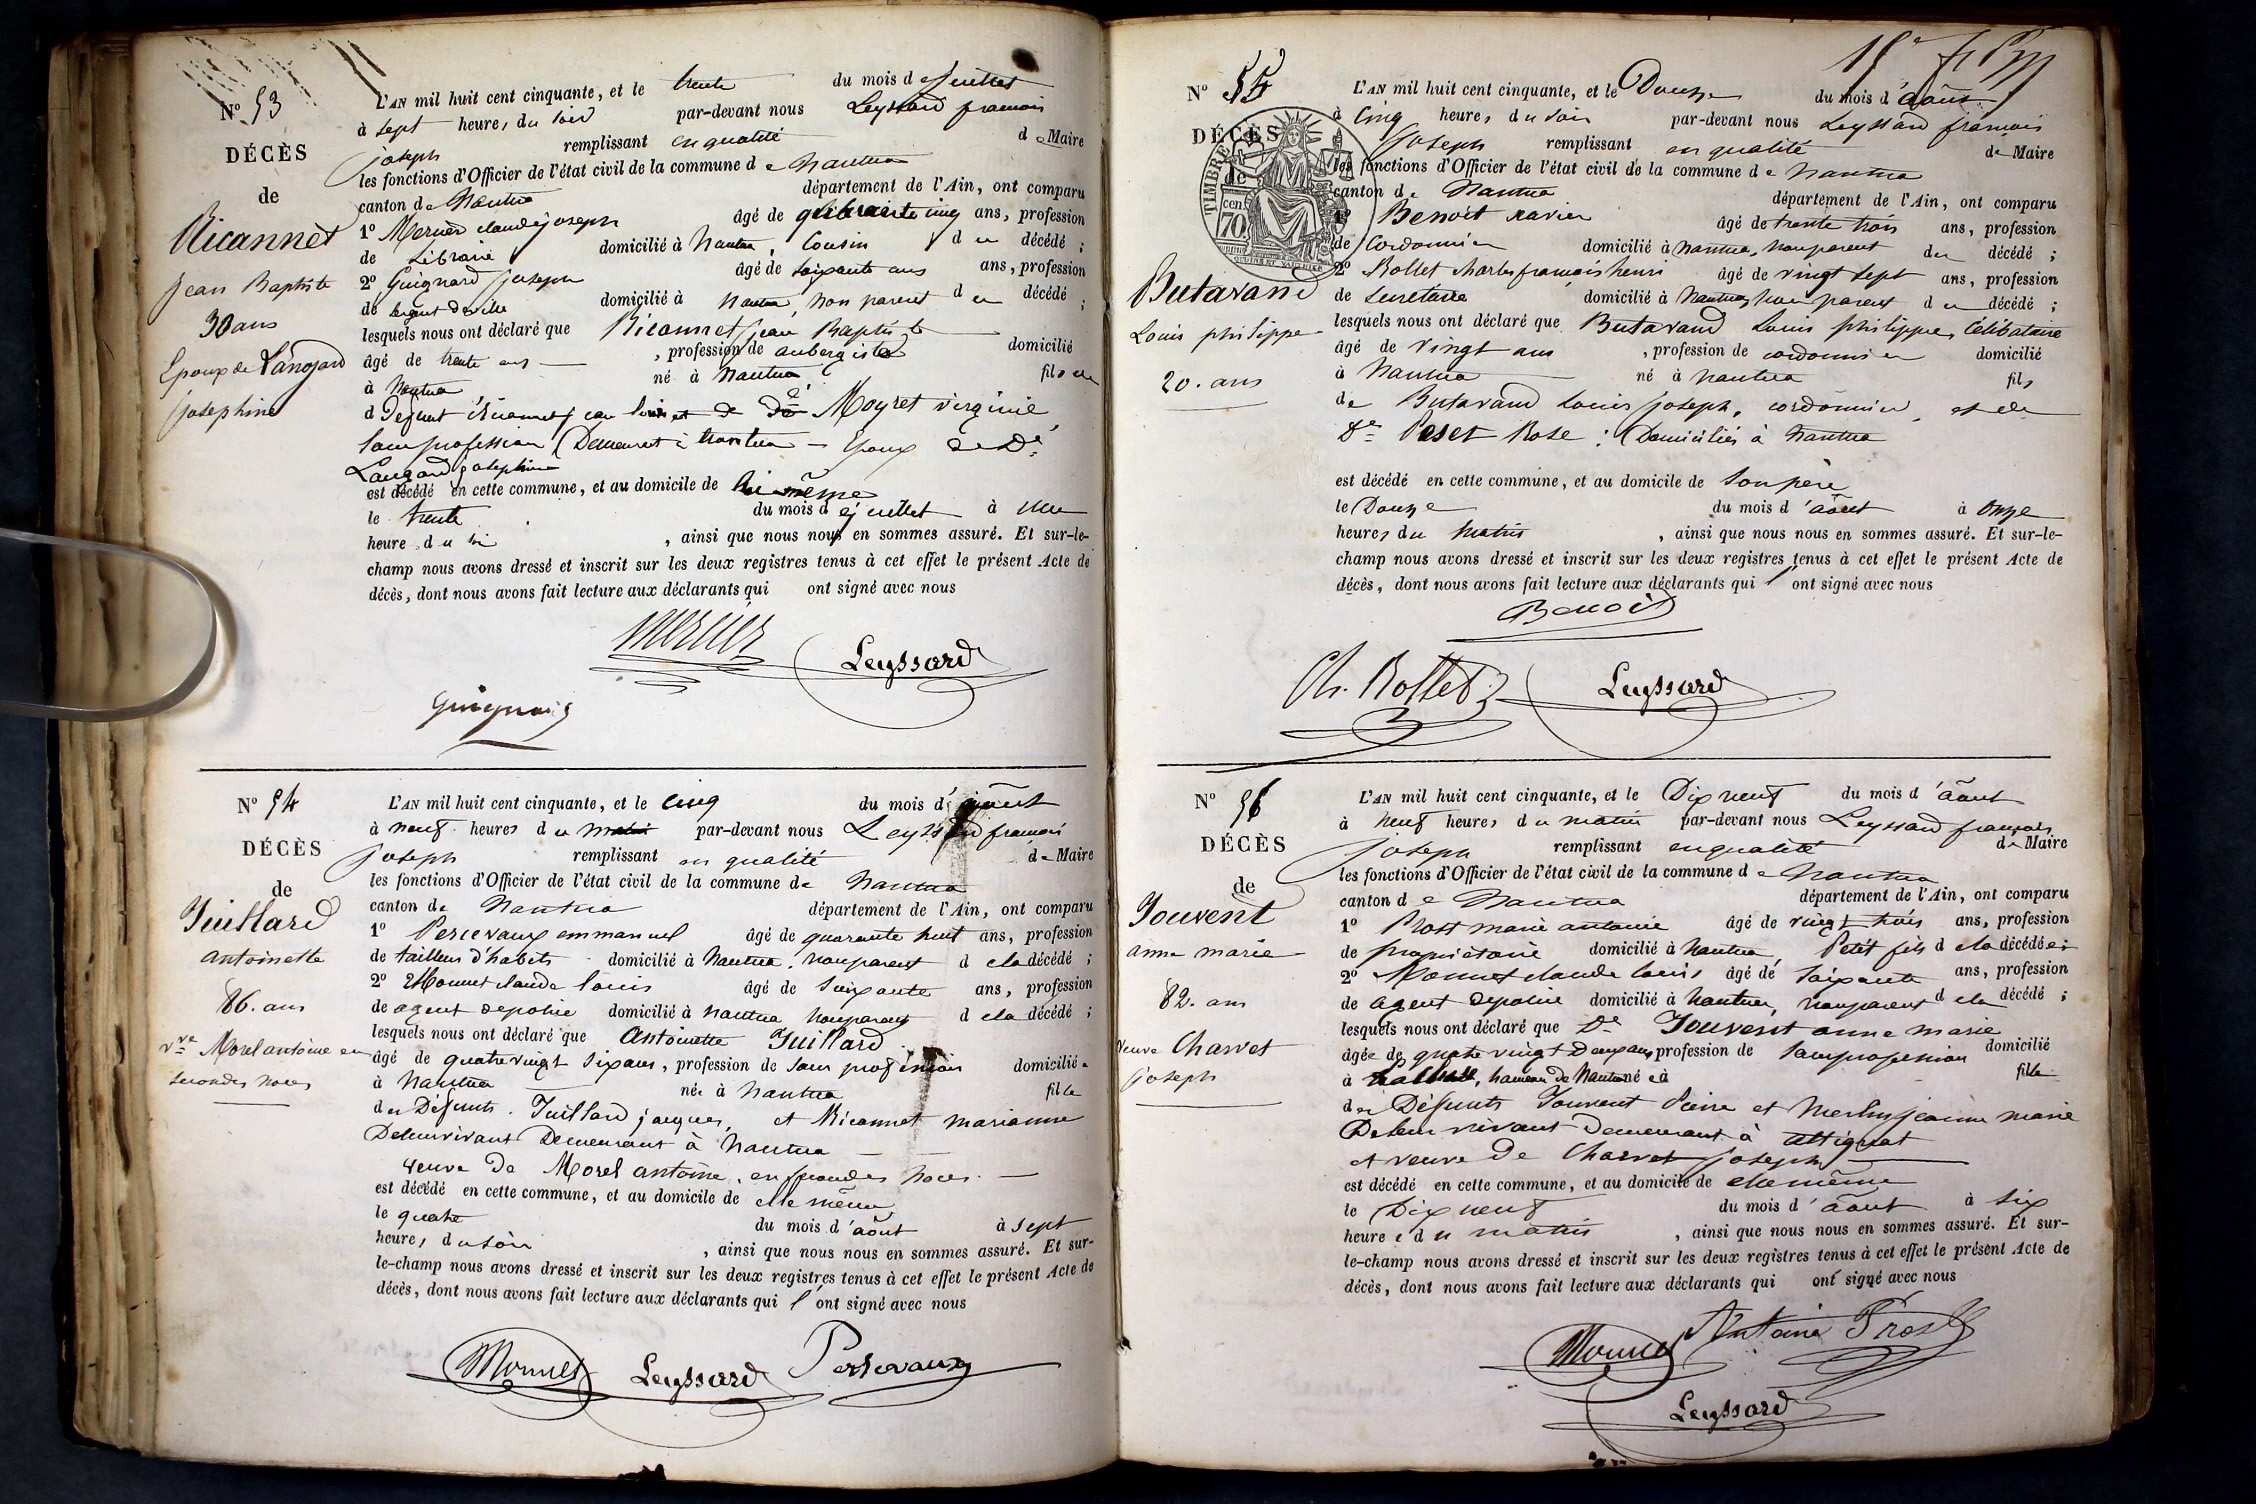 N° 53
DÉCÈS
de
Ricannet
Jean Baptiste
30 ans
Epoux de
Josephine
L'AN mil huit cent cinquante, et le trente du mois de Juillet
à sept heures du soir par-devant nous Leyssard francois
joseph remplissant en qualité de Maire
les fonctions d'Officier de l'état civil de la commune de Nantua
canton de Nantua département de l'Ain, ont comparu
1° Mercier claude joseph âgé de cinq ans, profession
de Libraire domicilié à Nantua, Cousin du décédé ;
2° Guignard joseph âgé de soixante ans ans, profession
de sergent de ville domicilié à Nantua, non parent du décédé ;
lesquels nous ont déclaré que Ricannet jean Baptiste
âgé de trente ans, profession de aubergiste domicilié
à Nantua né à Nantua fils de
Defunt Ricannet jean louis et de De Moyret virginie
sans profession Demeurant à Nantua – Epoux de De
josephine
est décédé en cette commune, et au domicile de lui même
le trente du mois de juillet à une
heure du , ainsi que nous nous en sommes assuré. Et sur-le-
champ nous avons dressé et inscrit sur les deux registres tenus à cet effet le présent Acte de
décès, dont nous avons fait lecture aux déclarants qui ont signé avec nous
Mercier
Leyssard
Guignard
N° 54
DÉCÈS
de
Juillard
antoinette
86. ans
vve Morel antoine en
secondes noces
L'AN mil huit cent cinquante, et le cinq du mois d'août
à neuf heures du matin par-devant nous Leyssard francois
joseph remplissant en qualité de Maire
les fonctions d'Officier de l'état civil de la commune de Nantua
canton de Nantua département de l'Ain, ont comparu
1° Percevaux emmanuel âgé de quarante huit ans, profession
de tailleur d'habits domicilié à Nantua, non parent de la décédé ;
2° Monnet claude louis âgé de soixante ans, profession
de agent de police domicilié à Nantua non parent de la décédé ;
lesquels nous ont déclaré que Antoinette Juillard
âgé de quatre vingt six ans, profession de sans profession domiciliée
à Nantua née à Nantua fille
des Défunts Juillard jacques, et Ricannet marianne
De leur vivant Demeurant à Nantua
veuve de Morel antoine, en secondes noces
est décédé en cette commune, et au domicile de elle même
le quatre du mois d'août à sept
heures du soir , ainsi que nous nous en sommes assuré. Et sur-
le-champ nous avons dressé et inscrit sur les deux registres tenus à cet effet le présent Acte de
décès, dont nous avons fait lecture aux déclarants qui l'ont signé avec nous
Monnet
Leyssard
Persevaux
N° 55
DÉCÈS
TIMBRE
de
cen.
70
Butavand
Louis philippe
20. ans
L'AN mil huit cent cinquante, et le Douze du mois d'août
à Cinq heures du soir par-devant nous Leyssard francois
Joseph remplissant en qualité de Maire
les fonctions d'Officier de l'état civil de la commune de Nantua
canton de Nantua département de l'Ain, ont comparu
1° Benoit xavier âgé de trente trois ans, profession
de Cordonnier domicilié à Nantua, non parent du décédé ;
2° Rollet charles françois henri âgé de vingt sept ans, profession
de secretaire domicilié à Nantua, non parent du décédé ;
lesquels nous ont déclaré que Butavand Louis philippe, Célibataire
âgé de vingt ans, profession de cordonnier domicilié
à Nantua né à Nantua fils
de Butavand Louis joseph, cordonnier, et de
De Peset Rose : Domiciliés à Nantua
est décédé en cette commune, et au domicile de son père
le Douze du mois d'août à onze
heures du Matin , ainsi que nous nous en sommes assuré. Et sur-le-
champ nous avons dressé et inscrit sur les deux registres tenus à cet effet le présent Acte de
décès, dont nous avons fait lecture aux déclarants qui l'ont signé avec nous
Benoit
Ch. Rollet
Leyssard
N° 56
DÉCÈS
de
Jouvent
anne marie
82. ans
veuve Charvet
joseph
L'AN mil huit cent cinquante, et le Dix neuf du mois d'août
à neuf heures du matin par-devant nous Leyssard françois
joseph remplissant en qualité de Maire
les fonctions d'Officier de l'état civil de la commune de Nantua
canton de Nantua département de l'Ain, ont comparu
1° Prost marie antoine âgé de vingt trois ans, profession
de propriétaire domicilié à Nantua, Petit fils de la décédée ;
2° Monnet claude louis âgé de soixante ans, profession
de agent de police domicilié à Nantua, non parent de la décédé ;
lesquels nous ont déclaré que De Jouvent anne marie
âgée de quatre vingt deux ans profession de sans profession domicilié
à , hameau de Nantua née à fille
des Défunts Jouvent Pierre et Merlin jeanne marie
De leur vivant demeurant à Attignat
et veuve de Charvet joseph
est décédé en cette commune, et au domicile de elle même
le Dix neuf du mois d'août à six
heure du matin , ainsi que nous nous en sommes assuré. Et sur-
le-champ nous avons dressé et inscrit sur les deux registres tenus à cet effet le présent Acte de
décès, dont nous avons fait lecture aux déclarants qui ont signé avec nous
Monnet
Antoine Prost
Leyssard